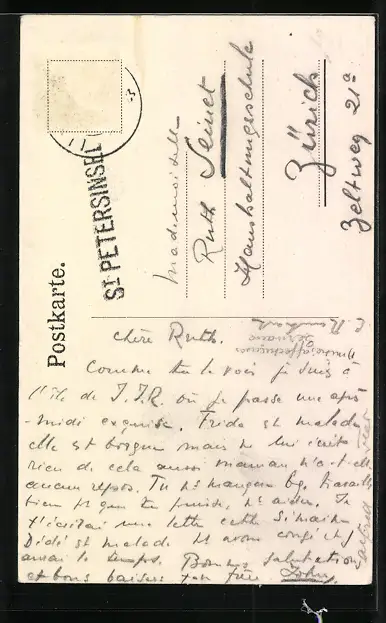 Postkarte.
St PETERSINSEL
Mademoiselle
Ruth Seinet
Haushaltungsschule
Zürich
Zeltweg 21a
chère Ruth.
Comme tu le vois je suis à
l'île de J.J.R. où je passe une après
-midi exquise. Frida est malade
elle est mais ne lui écris
rien de cela aussi maman n'a-t-elle
aucun repos. Tu ns manques bg. travaille
bien pr que tu puisse ns aider. Je
t'écrirai une lettre cette semaine
Dédé est malade
aurai le temps. Bonnes salutations
et bons baisers ton frère John.